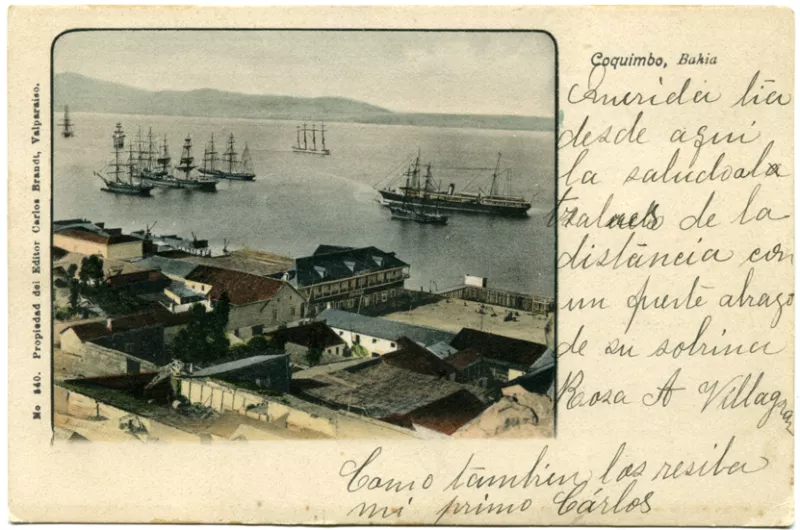 Coquimbo, Bahia
Querida tia
desde aqui
la saludo a
de la
distáncia con
un fuerte abrazo
de su sobrina
Rosa A Villagran
Como tambien los resiba
mi primo Cárlos
No 540. Propiedad del Editor Carlos Brandt, Valparaiso.